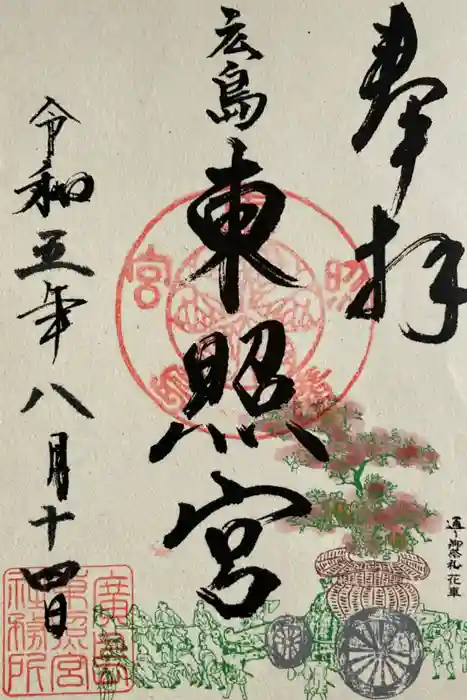 奉拝
広島
東照宮
令和五年八月十四日
通り御祭礼 花車
廣島
東照宮
社務所